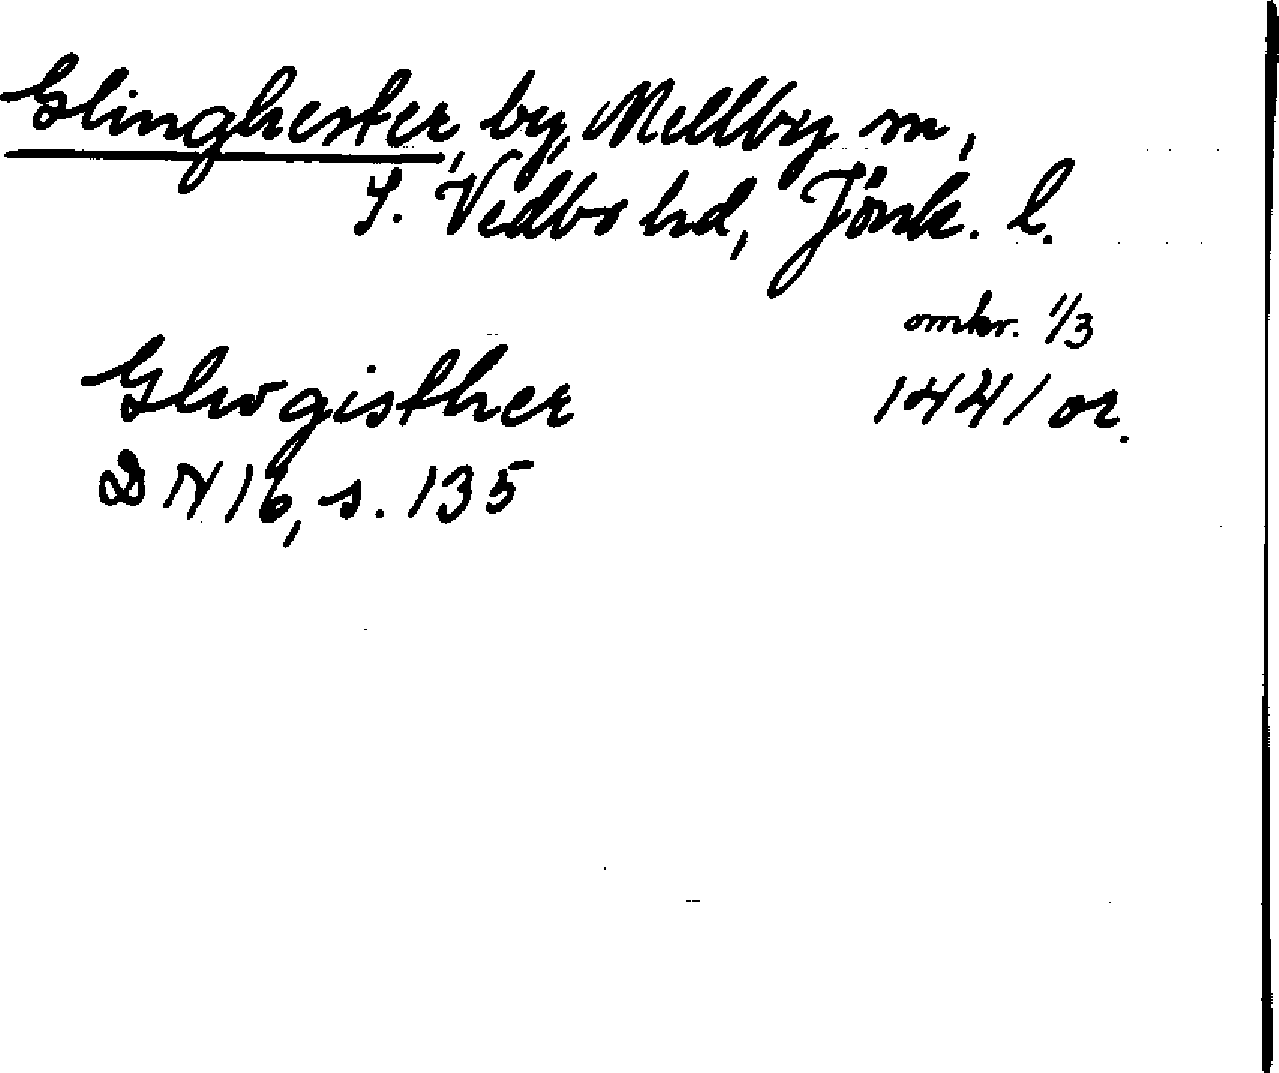 Glinghester, by, Mellby sn,
S. Vedbo hd, Jönk. l.
omkr. 1/3
Glwgisther 1441 or.
DN 16, s. 135